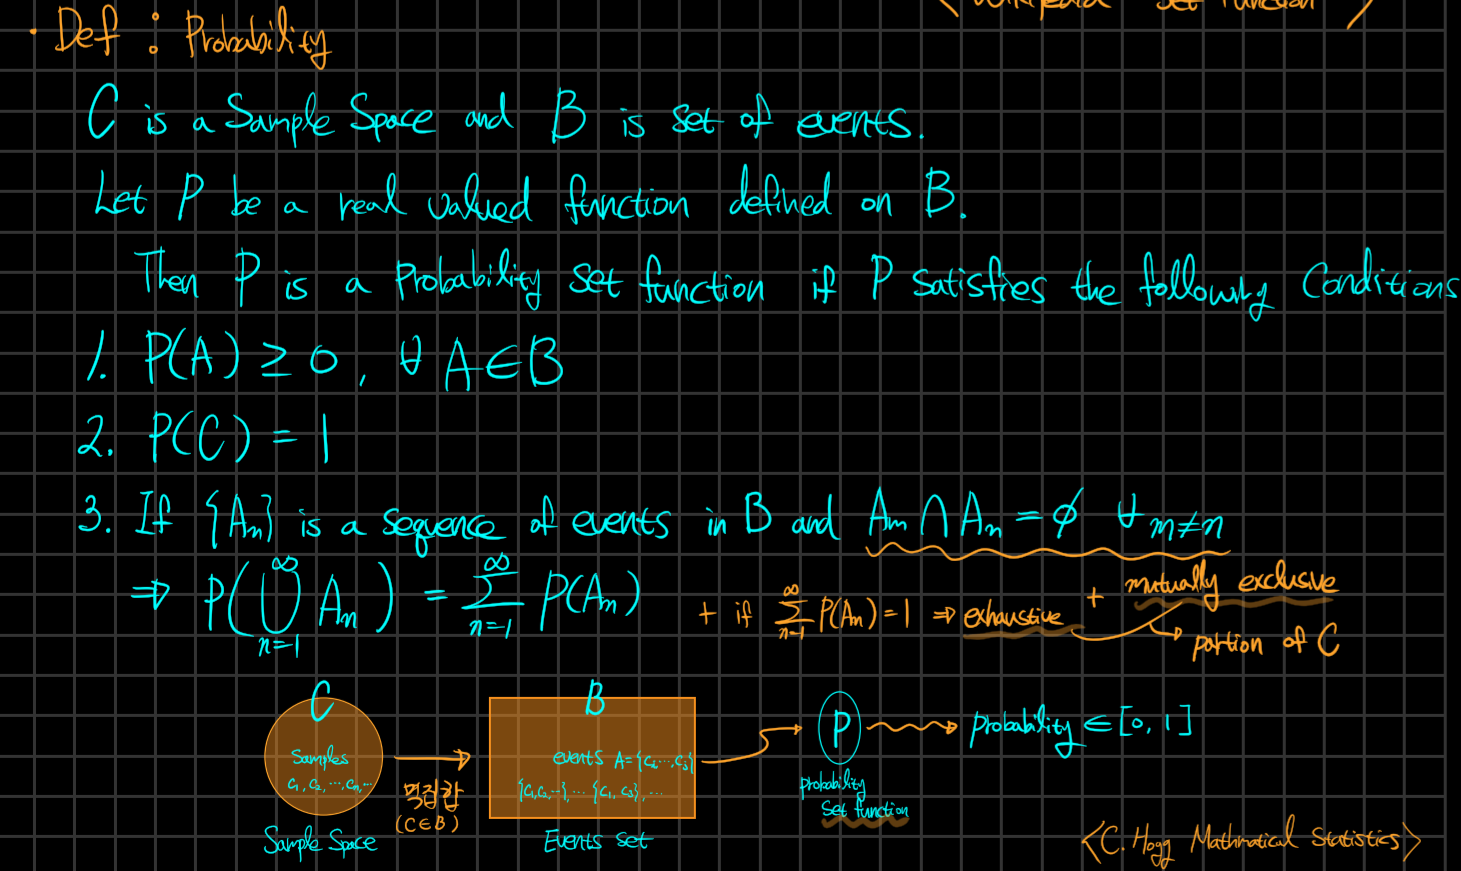 < Wikipedia Set Function >
· Def : Probability
C is a Sample Space and B is set of events.
Let P be a real valued function defined on B.
Then P is a Probability set function if P satisfies the following Conditions
1. P(A) ≥ 0, ∀ A∈B
2. P(C) = 1
3. If {Aₙ} is a sequence of events in B and Aₘ ∩ Aₙ = ∅ ∀ m≠n
⇒ P(⋃_{n=1}^{∞} Aₙ) = ∑_{n=1}^{∞} P(Aₙ)
+ if ∑_{n=1}^{∞} P(Aₙ) = 1 ⇒ exhaustive + mutually exclusive
→ partion of C
C
Samples
C₁, C₂, ⋯, Cₙ, ⋯
Sample Space
(C∈B)
B
events A={Cᵢ⋯, Cⱼ}
{C₁,C₂,⋯}, ⋯ {C₁, C₃}, ⋯
Events set
P
probability
set function
probability ∈ [0, 1]
<C. Hogg Mathmatical Statistics>